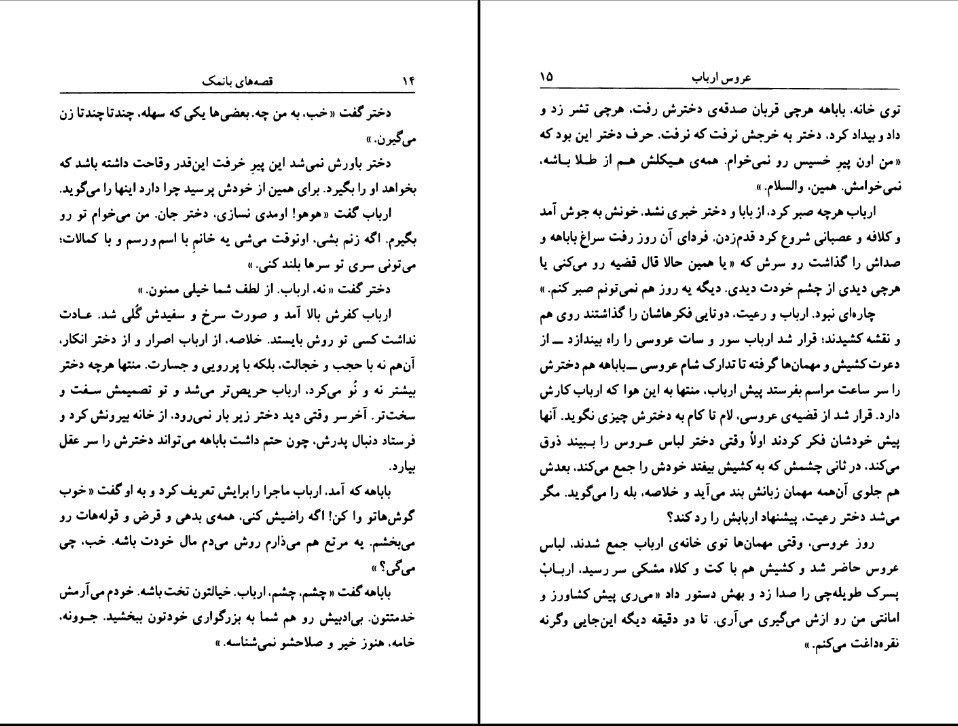 ۱۴ قصه‌های بانمک
دختر گفت «خب، به من چه. بعضی‌ها یکی که سهله، چندتا چندتا زن
می‌گیرن.»
دختر باورش نمی‌شد این پیر خرفت این‌قدر وقاحت داشته باشد که
بخواهد او را بگیرد. برای همین از خودش پرسید چرا دارد اینها را می‌گوید.
ارباب گفت «هوهو! اومدی نسازی، دختر جان. من می‌خوام تو رو
بگیرم. اگه زنم بشی، اونوقت می‌شی یه خانمِ با اسم و رسم و با کمالات؛
می‌تونی سری تو سرها بلند کنی.»
دختر گفت «نه، ارباب. از لطف شما خیلی ممنون.»
ارباب کفرش بالا آمد و صورت سرخ و سفیدش گُلی شد. عادت
نداشت کسی تو روش بایستد. خلاصه، از ارباب اصرار و از دختر انکار،
آن‌هم نه با حجب و خجالت، بلکه با پررویی و جسارت. منتها هرچه دختر
بیشتر نه و نُو می‌کرد، ارباب حریص‌تر می‌شد و تو تصمیمش سفت و
سخت‌تر. آخرسر وقتی دید دختر زیر بار نمی‌رود، از خانه بیرونش کرد و
فرستاد دنبال پدرش، چون حتم داشت باباهه می‌تواند دخترش را سر عقل
بیارد.
باباهه که آمد، ارباب ماجرا را برایش تعریف کرد و به او گفت «خوب
گوش‌هاتو وا کن! اگه راضیش کنی، همه‌ی بدهی و قرض و قوله‌هات رو
می‌بخشم. یه مرتع هم می‌ذارم روش می‌دم مال خودت باشه. خب، چی
می‌گی؟»
باباهه گفت «چشم، چشم، ارباب. خیالتون تخت باشه. خودم می‌آرمش
خدمتتون. بی‌ادبیش رو هم شما به بزرگواری خودتون ببخشید. جوونه،
خامه، هنوز خیر و صلاحشو نمی‌شناسه.»
عروس ارباب ۱۵
توی خانه، باباهه هرچی قربان صدقه‌ی دخترش رفت، هرچی تشر زد و
داد و بیداد کرد، دختر به خرجش نرفت که نرفت. حرف دختر این بود که
«من اون پیر خسیس رو نمی‌خوام. همه‌ی هیکلش هم از طلا باشه،
نمی‌خوامش. همین، والسلام.»
ارباب هرچه صبر کرد، از بابا و دختر خبری نشد. خونش به جوش آمد
و کلافه و عصبانی شروع کرد قدم‌زدن. فردای آن روز رفت سراغ باباهه و
صداش را گذاشت رو سرش که «یا همین حالا قال قضیه رو می‌کنی یا
هرچی دیدی از چشم خودت دیدی. دیگه یه روز هم نمی‌تونم صبر کنم.»
چاره‌ای نبود. ارباب و رعیت، دوتایی فکرهاشان را گذاشتند روی هم
و نقشه کشیدند؛ قرار شد ارباب سور و سات عروسی را راه بیندازد ــ از
دعوت کشیش و مهمان‌ها گرفته تا تدارک شام عروسی ــ باباهه هم دخترش
را سر ساعت مراسم بفرستد پیش ارباب، منتها به این هوا که ارباب کارش
دارد. قرار شد از قضیه‌ی عروسی، لام تا کام به دخترش چیزی نگوید. آنها
پیش خودشان فکر کردند اولاً وقتی دختر لباس عروس را ببیند ذوق
می‌کند، در ثانی چشمش که به کشیش بیفتد خودش را جمع می‌کند، بعدش
هم جلوی آن‌همه مهمان زبانش بند می‌آید و خلاصه، بله را می‌گوید. مگر
می‌شد دختر رعیت، پیشنهاد اربابش را رد کند؟
روز عروسی، وقتی مهمان‌ها توی خانه‌ی ارباب جمع شدند، لباس
عروس حاضر شد و کشیش هم با کت و کلاه مشکی سر رسید، اربابْ
پسرک طویله‌چی را صدا زد و بهش دستور داد «می‌ری پیش کشاورز و
امانتی من رو ازش می‌گیری می‌آری. تا دو دقیقه دیگه این‌جایی وگرنه
نقره‌داغت می‌کنم.»